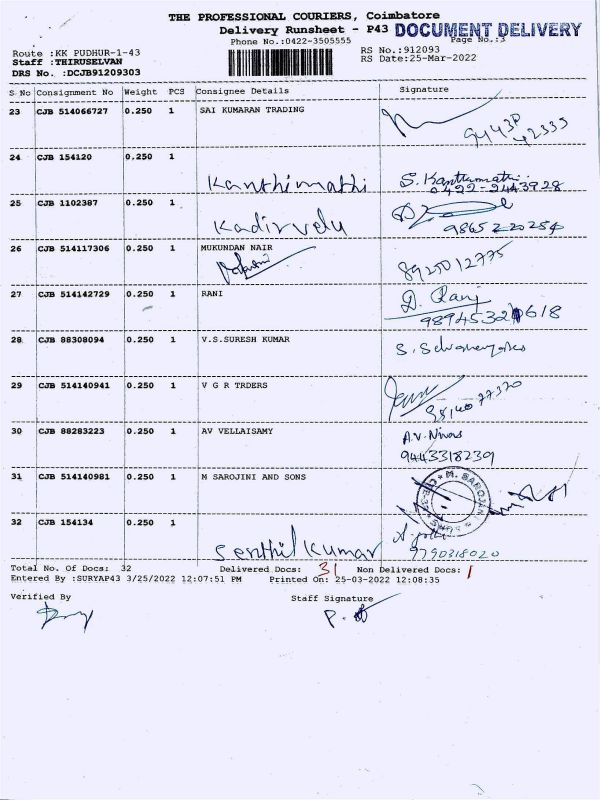 THE PROFESSIONAL COURIERS, Coimbatore
Delivery Runsheet - P43 DOCUMENT DELIVERY
Phone No.:0422-3505555 Page No.:3
Route :KK PUDHUR-1-43 RS No.:912093
Staff :THIRUSELVAN RS Date:25-Mar-2022
DRS No. :DCJB91209303
S No Consignment No Weight PCS Consignee Details Signature
23 CJB 514066727 0.250 1 SAI KUMARAN TRADING
9443P
42335
24 CJB 154120 0.250 1
Kanthimathi S. Kanthimathi
0422-2443928
25 CJB 1102387 0.250 1
Kadirvelu 9865220254
26 CJB 514117306 0.250 1 MUKUNDAN NAIR
8925012775
27 CJB 514142729 0.250 1 RANI D. Rani
28 CJB 88308094 0.250 1 V.S.SURESH KUMAR
29 CJB 514140941 0.250 1 V G R TRDERS
30 CJB 88283223 0.250 1 AV VELLAISAMY A.V.
9443318239
31 CJB 514140981 0.250 1 M SAROJINI AND SONS
32 CJB 154134 0.250 1
Senthil Kumar 9790318020
Total No. Of Docs: 32 Delivered Docs: 31 Non Delivered Docs: 1
Entered By :SURYAP43 3/25/2022 12:07:51 PM Printed On: 25-03-2022 12:08:35
Verified By Staff Signature